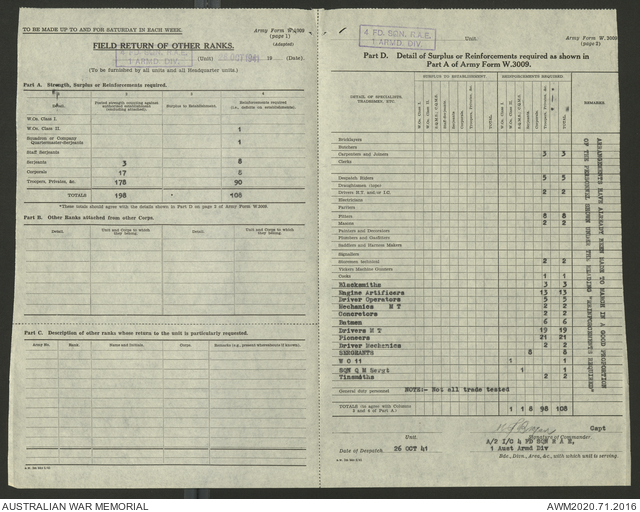 TO BE MADE UP TO AND FOR SATURDAY IN EACH WEEK.
Army Form W.3009
(page 1)
FIELD RETURN OF OTHER RANKS.
(Adapted)
4 FD. SQN. R.A.E.
1 ARMD. DIV.
(Unit)
(Date)
(To be furnished by all units and all Headquarter units.)
Part A. Strength, Surplus or Reinforcements required.
1 2 3 4
Detail.
Surplus to Establishments
W.Os. Class I.
W.Os. Class II. 1
Squadron or Company Quartermaster-Serjeants 1
Staff Serjeants
Serjeants 3 8
Corporals 17 8
Troopers, Privates, &c. 178 90
TOTALS 198 108
*These totals should agree with the details shown in Part D on page 2 of Army Form W.3009
Part B. Other Ranks attached from other Corps.
Detail. Unit and Corps to which they belong. Detail. Unit and Corps to which they belong.
Part C. Description of other ranks whose return to the unit is particularly requested.
Army No. Rank. Name and Initials. Corps. Remarks (e.g., present whereabouts if known).
4 FD. SQN. R.A.E.
1 ARMD. DIV.
Unit.
Army Form W.3009
(page 2)
Part D. Detail of Surplus or Reinforcements required as shown in
Part A of Army Form W.3009.
DETAIL OF SPECIALISTS, TRADESMEN, ETC.
SURPLUS TO ESTABLISHMENT.
REINFORCEMENTS REQUIRED.
REMARKS
Bricklayers
Butchers
Carpenters and Joiners 3 3
Clerks
Despatch Riders 5 5
Draughtsmen (topo)
Drivers H.T. and/or I.C. 2 2
Electricians
Farriers
Fitters 8 8
Masons 2 2
Painters and Decorators
Plumbers and Gasfitters
Saddlers and Harness Makers
Signallers
Storemen technical 2 2
Vickers Machine Gunners
Cooks 1 1
Blacksmiths 3 3
Engine Artificers 13 13
Driver Operators 5 5
Mechanics M T 2 2
Concretors 2 2
Batmen 6 6
Drivers M T 19 19
Pioneers 21 21
Driver Mechanics 2 2
SERGEANTS 8 8
W O 11 1 1
SQN Q M Sergt 1 1
Tinsmiths 2 2
General duty personnel NOTE:- Not all trade tested
TOTALS (to agree with Columns 3 and 4 of Part A.) 1 1 8 98 108
ARRANGEMENTS HAVE ALREADY BEEN MADE TO MARCH IN A GOOD PROPORTION
OF THE PERSONNEL SHOWN UNDER THE HEADING "REINFORCEMENTS REQUIRED"
Capt
Unit. Signature of Commander.
A/2 I/C 4 FD SQN R A E,
Date of Despatch 26 OCT 41 1 Aust Armd Div
Bde., Divn., Area, &c., with which unit is serving.
AUSTRALIAN WAR MEMORIAL
AWM2020.71.2016